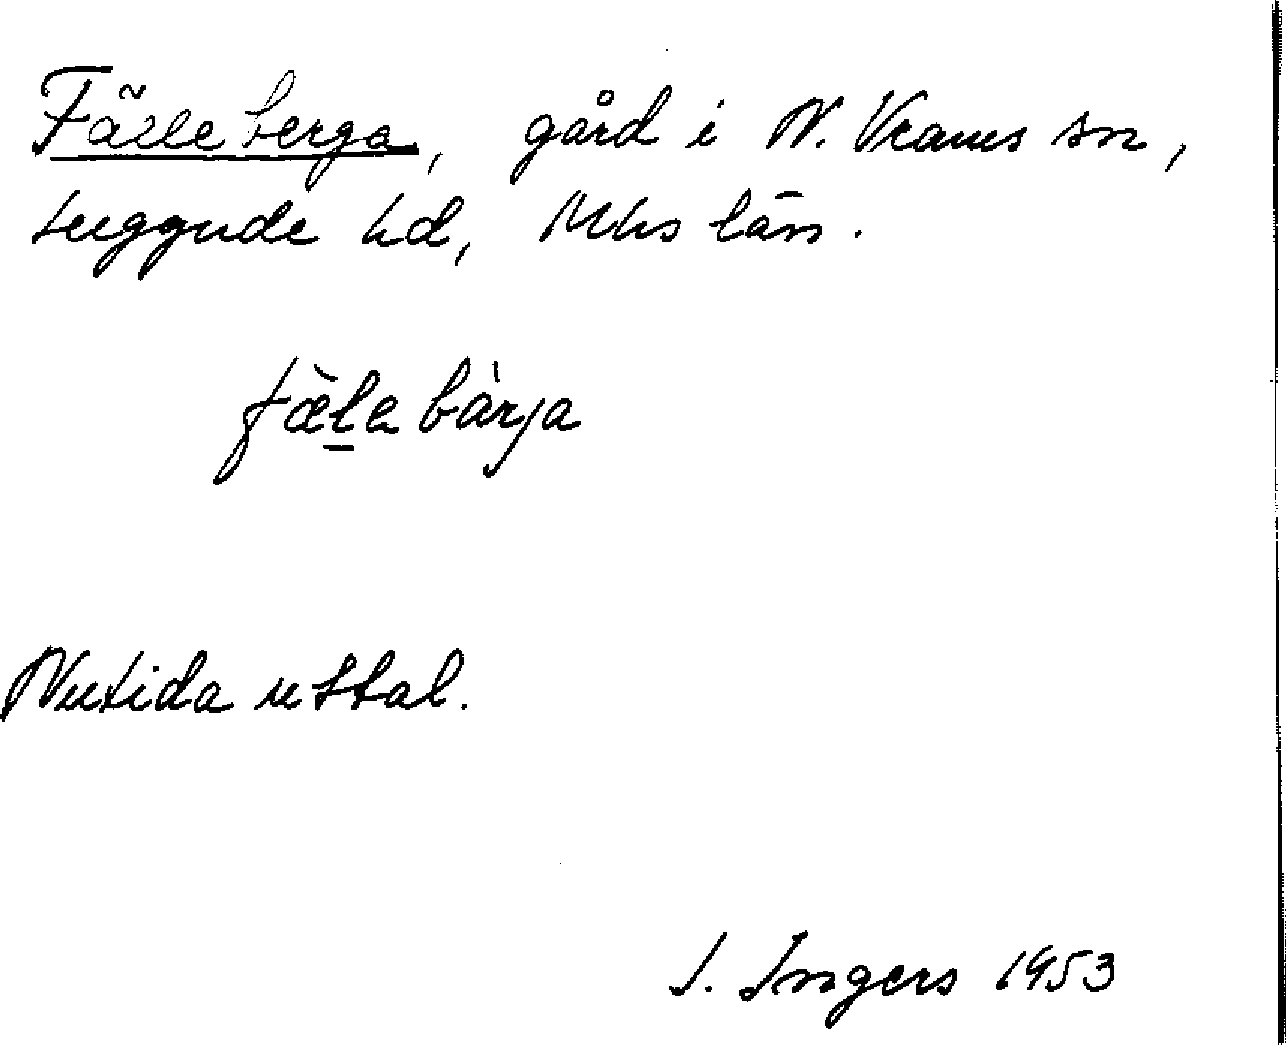 Fälleberga, gård i N. Vrams sn,
Luggude hd, Mhs län.
fæ̀la bàrja
Nutida uttal.
I. Ingers 1953